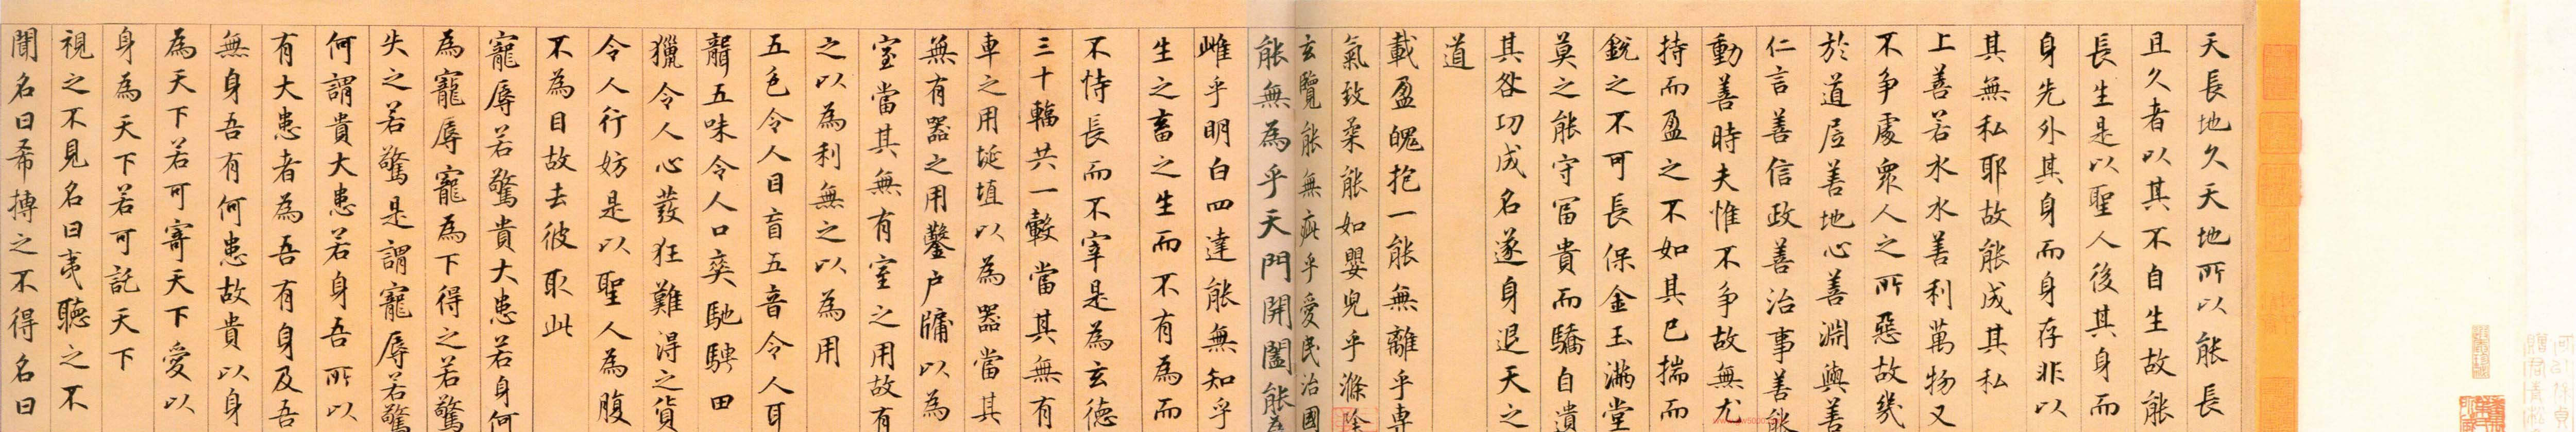 天長地久天地所以能長
且久者以其不自生故能
長生是以聖人後其身而
身先外其身而身存非以
其無私耶故能成其私
上善若水水善利萬物又
不争處衆人之所惡故幾
於道居善地心善淵與善
仁言善信政善治事善能
動善時夫惟不争故無尤
持而盈之不如其已揣而
銳之不可長保金玉滿堂
莫之能守冨貴而驕自遺
其咎功成名遂身退天之
道
載盈魄抱一能無離乎專
氣致柔能如嬰兒乎滌除
玄覽能無疵乎愛民治國
能無為乎天門開闔能為
雌乎明白四達能無知乎
生之畜之生而不有為而
不恃長而不宰是為玄德
三十輻共一轂當其無有
車之用埏埴以為器當其
無有器之用鑿户牖以為
室當其無有室之用故有
之以為利無之以為用
五色令人目盲五音令人耳
聾五味令人口爽馳騁田
獵令人心發狂難得之貨
令人行妨是以聖人為腹
不為目故去彼取此
寵辱若驚貴大患若身何
為寵辱寵為下得之若驚
失之若驚是謂寵辱若驚
何謂貴大患若身吾所以
有大患者為吾有身及吾
無身吾有何患故貴以身
為天下若可寄天下愛以
身為天下若可託天下
視之不見名曰夷聽之不
聞名曰希摶之不得名曰